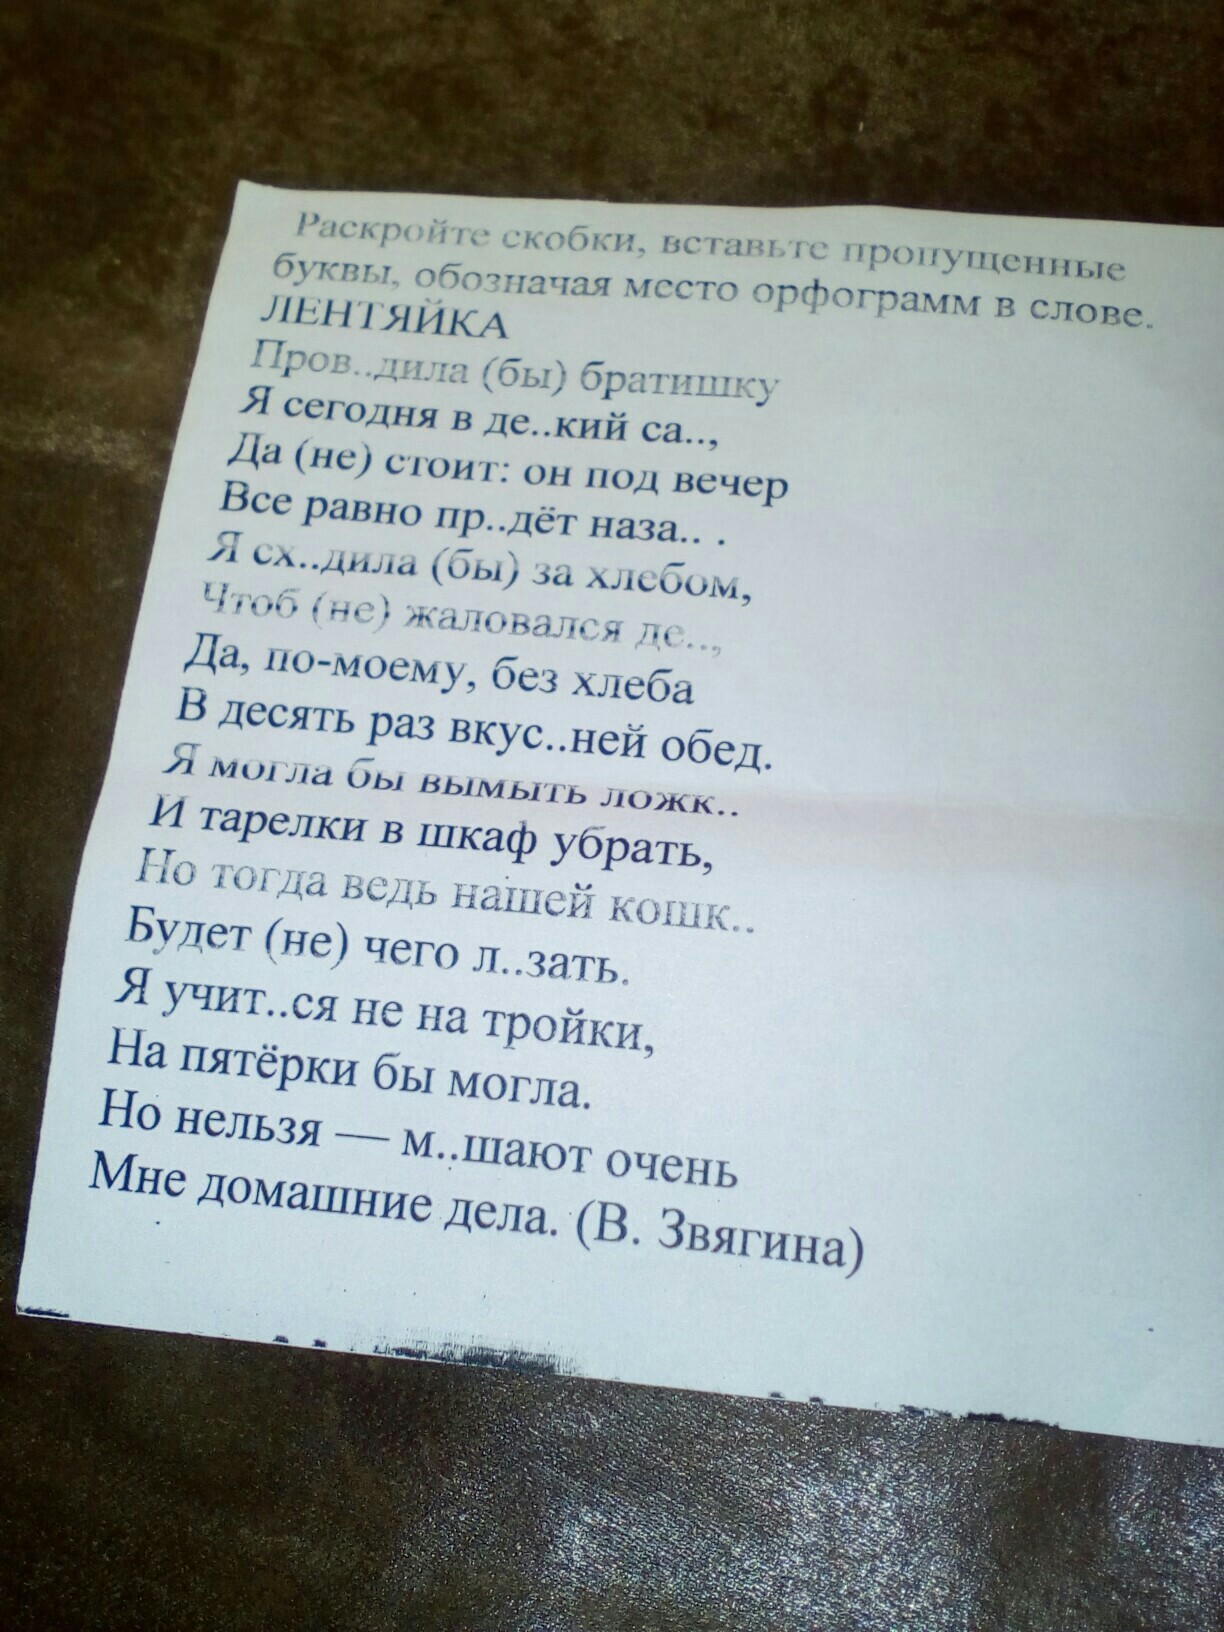 Раскройте скобки, вставьте пропущенные
буквы, обозначая место орфограмм в слове.
ЛЕНТЯЙКА
Пров..дила (бы) братишку
Я сегодня в де..кий са..,
Да (не) стоит: он под вечер
Все равно пр..дёт наза.. .
Я сх..дила (бы) за хлебом,
Чтоб (не) жаловался де..,
Да, по-моему, без хлеба
В десять раз вкус..ней обед.
Я могла бы вымыть ложк..
И тарелки в шкаф убрать,
Но тогда ведь нашей кошк..
Будет (не) чего л..зать.
Я учит..ся не на тройки,
На пятёрки бы могла.
Но нельзя — м..шают очень
Мне домашние дела. (В. Звягина)